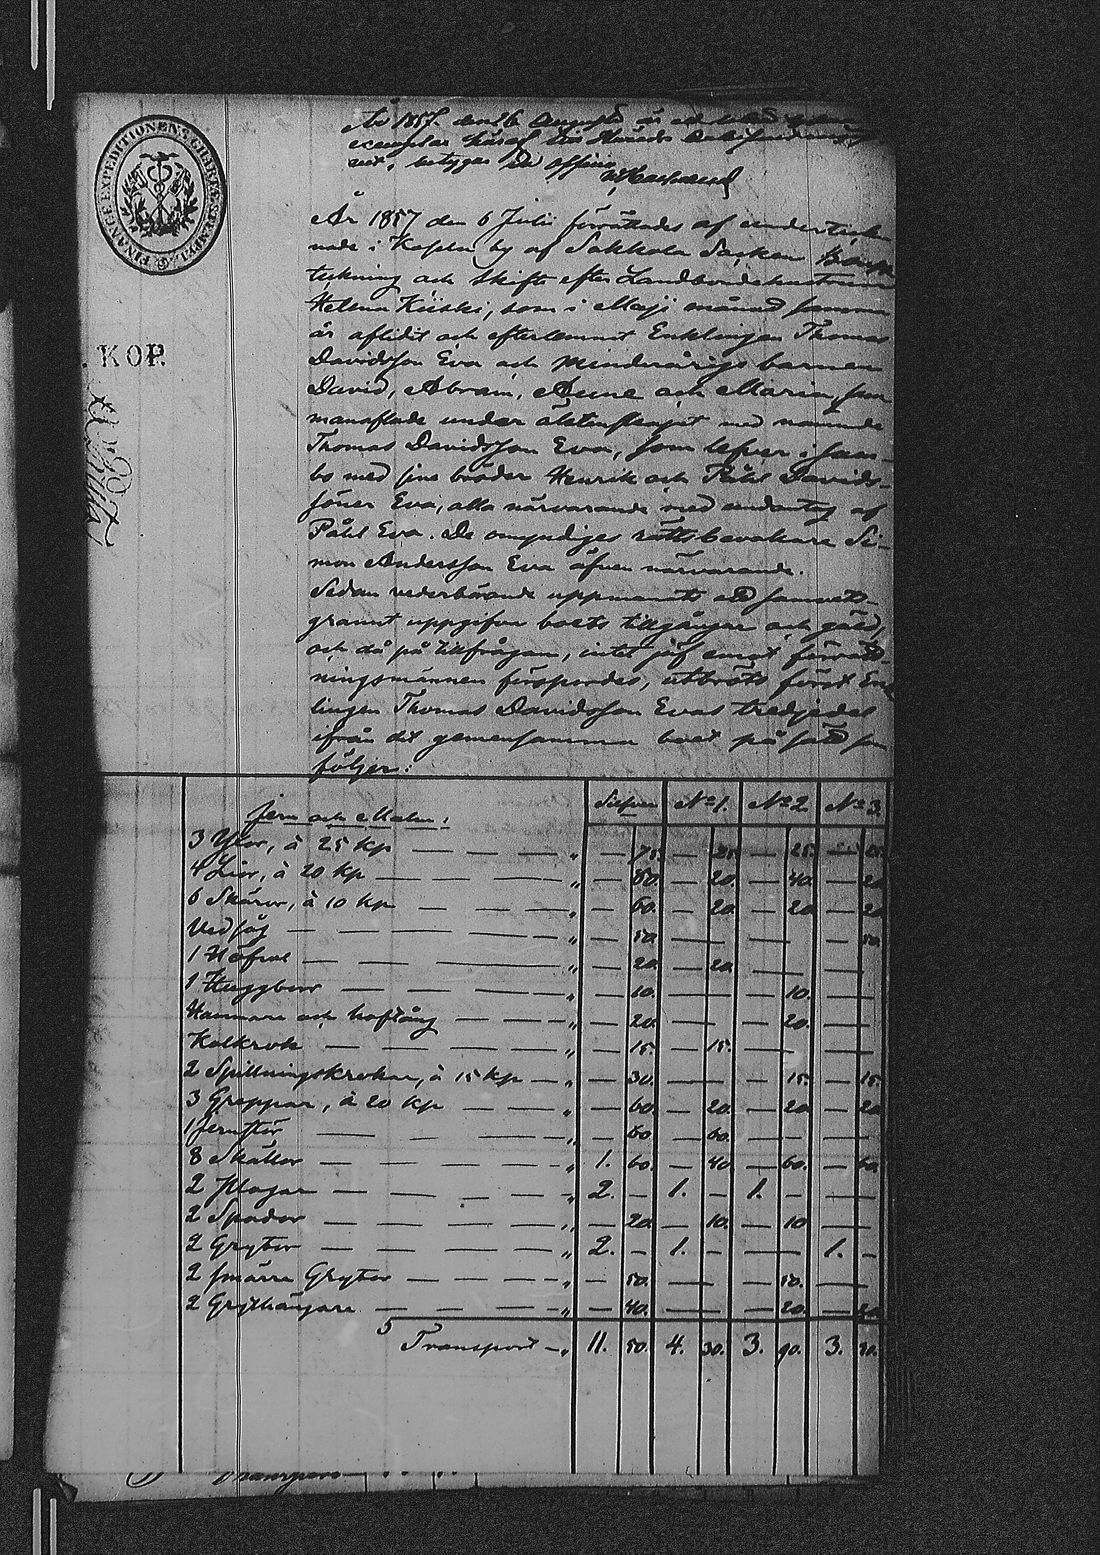 FINANCE EXPEDITIONENS CHARTÆ STEMPEL
KOP.
År 1857 den 6 Augusti är
exemplar häraf till Härads
rätt, betygar Ex officio
År 1857 den 6 Julii förrättades af underteck-
nade i Kopsela by af Sakkola Socken Boupp-
teckning och Skifte efter Landbondehustrun
Helena Kiiski, som i Maji månad samma
år aflidit och efterlemnat Enklingen Thomas
Davidsson Eva och minderårige barnen
David, Abram, Anne och Maria, sam-
manaflade under äktenskapet med nämnde
Thomas Davidsson Eva, som lefver i sam-
bo med sine bröder Henrik och Påhl Davids-
söner Eva, alla närvarande med undantag af
Påhl Eva. De omyndiges rättsbevakare Si-
mon Andersson Eva äfven närvarande.
Sedan vederbörande uppmanats att samvets-
grannt uppgifva boets tillgångar och gäld,
och då på tillfrågan, intet jäf emot förrätt-
ningsmännen förspordes, utbröts först Enk-
lingen Thomas Davidsson Evas tredjedel
ifrån det gemensamma boet på sätt som
följer:
Silfver No 1. No 2. No 3.
Jern och Malm:
3 Yxor, à 25 kp — — — „ — 75. — 25. — 25. — 25.
4 Liar, à 20 kp — — — „ — 80. — 20. — 40. — 20.
6 Skäror, à 10 kp — — — „ — 60. — 20. — 20. — 20.
Vedsåg — — — „ — 50. — — — 50.
1 Höfvel — — — „ — 20. — 20. — —
1 Huggborr — — — „ — 10. — — 10. —
Hammare och hoftång — — — „ — 20. — — 20. —
Kolkrok — — — „ — 15. — 15. — —
2 Spillningskrokar, à 15 kp — „ — 30. — — 15. — 15.
3 Greppar, à 20 kp — — — „ — 60. — 20. — 20. — 20.
1 Jernstör — — — „ — 60. — 60. — —
8 Skällor — — — „ 1. 60. — 40. — 60. — 60.
2 Plogar — — — „ 2. — 1. — 1. — —
2 Spador — — — „ — 20. — 10. — 10. —
2 Grytor — — — „ 2. — 1. — — 1. —
2 smärre Grytor — — — „ — 50. — — 50. —
2 Grythängare — — — „ — 40. — — 20. — 20.
Transport — „ 11. 50. 4. 30. 3. 90. 3. 30.
Transport